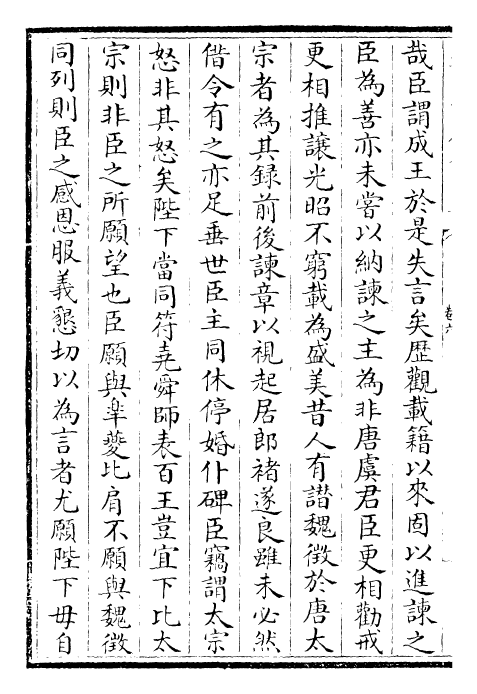 哉臣謂成王於是失言矣歷觀載籍以來固以進諫之
臣為善亦未嘗以納諫之主為非唐虞君臣更相勸戒
更相推讓光昭不窮載為盛美昔人有譛魏徵於唐太
宗者為其錄前後諫章以視起居郎褚遂良雖未必然
借令有之亦足垂世臣主同休停婚仆碑臣竊謂太宗
怒非其怒矣陛下當同符堯舜師表百王豈宜下比太
宗則非臣之所願望也臣願與皋夔比肩不願與魏徵
同列則臣之感恩服義懇切以為言者尤願陛下毋自
卷六